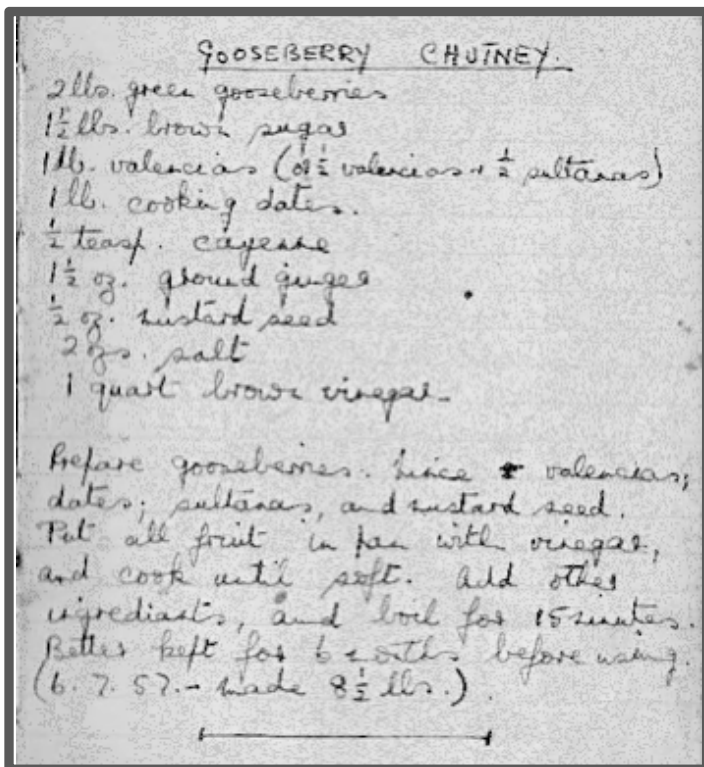 GOOSEBERRY CHUTNEY.
2 lbs. green gooseberries
1½ lbs. brown sugar
1 lb. valencias (or ½ valencias + ½ sultanas)
1 lb. cooking dates.
½ teasp. cayenne
1½ oz. ground ginger
½ oz. mustard seed
2 ozs. salt
1 quart brown vinegar.
Prepare gooseberries. Mince valencias;
dates; sultanas, and mustard seed.
Put all fruit in pan with vinegar,
and cook until soft. Add other
ingrediants, and boil for 15 minutes.
Better kept for 6 months before using.
(6. 7. 57. - made 8½ lbs.)